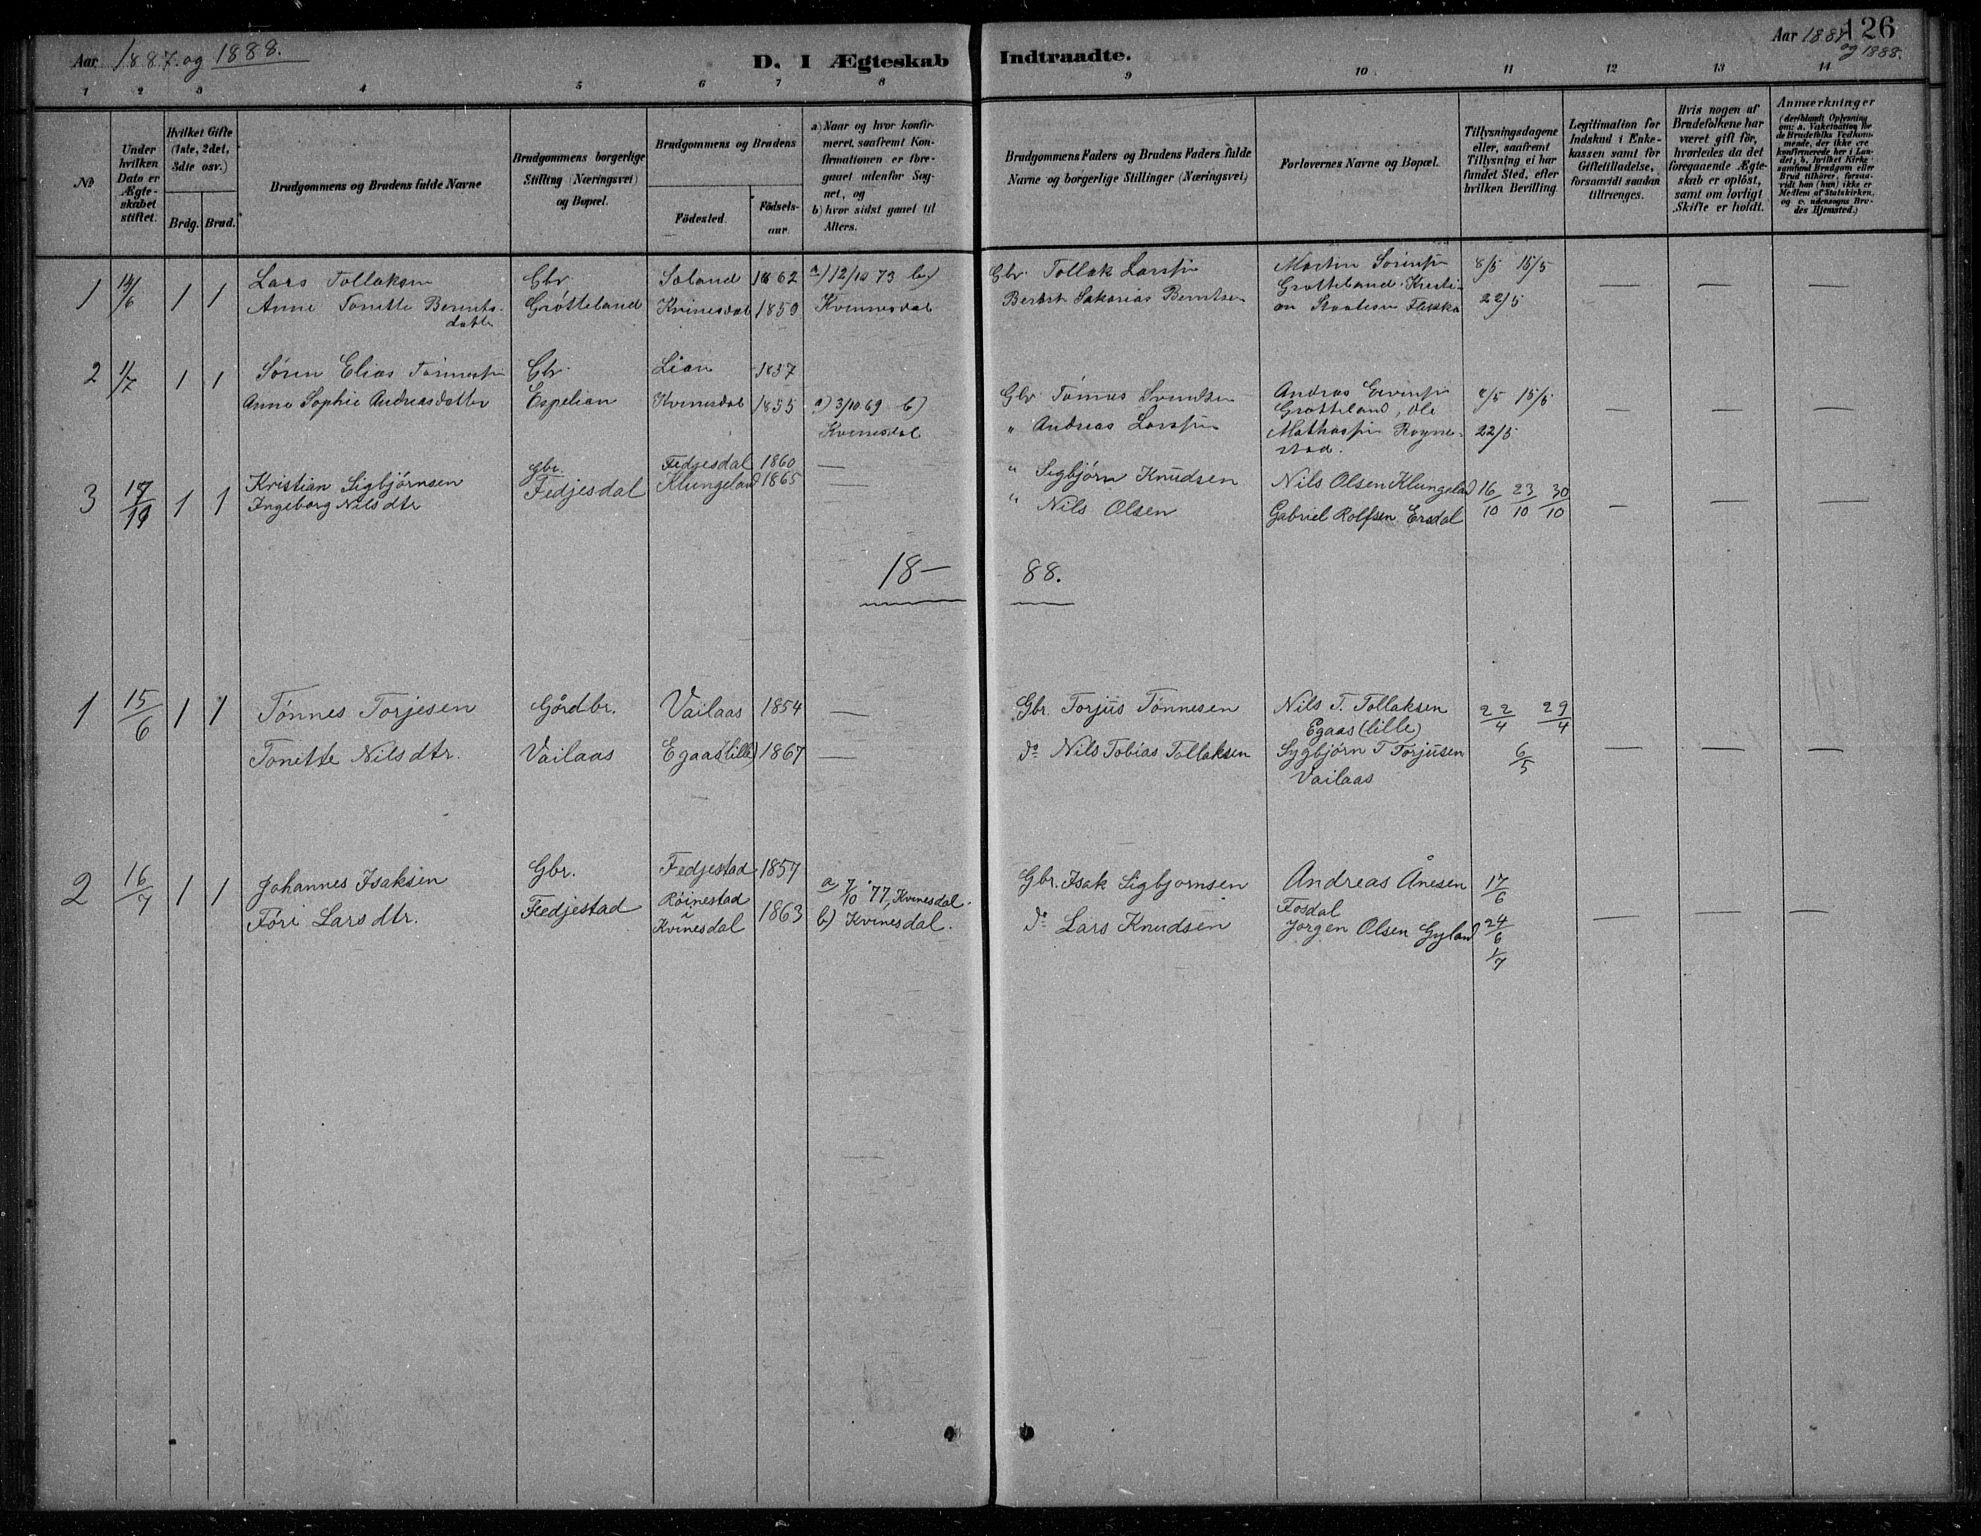 Aar 1887 og 1888.
D. I Ægteskab Indtraadte.
Aar 1887 og 1888.
126
1 2 3 4 5 6 7 8 9 10 11 12 13 14
No
Under hvilken Dato er Ægteskabet stiftet.
Hvilket Gifte (1ste, 2det, 3die osv.)
Brdg. Brud.
Brudgommens og Brudens fulde Navne
Brudgommens borgerlige Stilling (Næringsvei) og Bopæl.
Brudgommens og Brudens
Fødested. Fødselsaar.
a) Naar og hvor konfirmeret, saafremt Konfirmationen er foregaaet udenfor Sognet, og
b) hvor sidst gaaet til Alters.
Brudgommens Faders og Brudens Faders fulde Navne og borgerlige Stillinger (Næringsvei)
Forlovernes Navne og Bopæl.
Tillysningsdagene eller, saafremt Tillysning ei har fundet Sted, efter hvilken Bevilling.
Legitimation for Indskud i Enkekassen samt for Giftetilladelse, forsaavidt saadan tiltrænges.
Hvis nogen af Brudefolkene har været gift før, hvorledes da det foregaaende Ægteskab er opløst, samt om lovligt Skifte er holdt.
Anmærkninger
(deriblandt Oplysning om: a. Vakcination for de Brudefolks Vedkommende, der ikke ere konfirmerede her i Landet; b. hvilket Kirkesamfund Brudgom eller Brud tilhører, forsaavidt han (hun) ikke er Medlem af Statskirken, og c. udensogns Brudes Hjemsted.)
1 14/6 1 1 Lars Tollaksen Gbr Soland 1862 a) 12/10 73 b) Gbr Tollak Larssen Martin Sørensen 8/5 15/5
Anne Tonette Berentsdatter Grøtteland Kvinesdal 1850 Kvinnesdal Sakarias Berntsen Grøtteland, Kristian Flikka 22/5 — — —
2 1/7 1 1 Søren Elias Tønnessen Gbr. Lian 1837
Anne Sophie Andreasdatter Espelian Kvinesdal 1855 a) 3/10 69 b) Kvinesdal
Gbr Tønnes Svendsen Andreas Grøtteland, Ole 8/5 15/5
" Andreas Larssen Røynestad. 22/5 — — —
3 17/10 1 1 Kristian Sigbjørnsen Gbr. Fedjesdal 1860 — " Sigbjørn Knudsen Nils Olsen Klungeland 16/10 23/10 30/10
Ingeborg Nilsdtr Fedjesdal Klungeland 1865 — " Nils Olsen Gabriel Rolfsen Ersdal — — —
18— 88.
1 15/6 1 1 Tønnes Torjesen Gårdbr. Vailaas 1854 — Gbr. Torjus Tønnesen Nils T. Tollaksen Egaas (lille) 22/4 29/4
Tonette Nilsdtr. Vailaas Egaas (lille) 1867 — do Nils Tobias Tollaksen Sygbjørn T Torjusen Vailaas 6/5 — — —
2 16/7 1 1 Johannes Isaksen Gbr. Fedjestad 1857 Gbr. Isak Sigbjørnsen Andreas Ånesen Fosdal 17/6
Tøri Larsdtr. Fedjestad Røinestad i Kvinesdal 1863 a, 7/10 '77, Kvinesdal.
b) Kvinesdal. do Lars Knudsen Jørgen Olsen Gyland 24/6 1/7 — — —